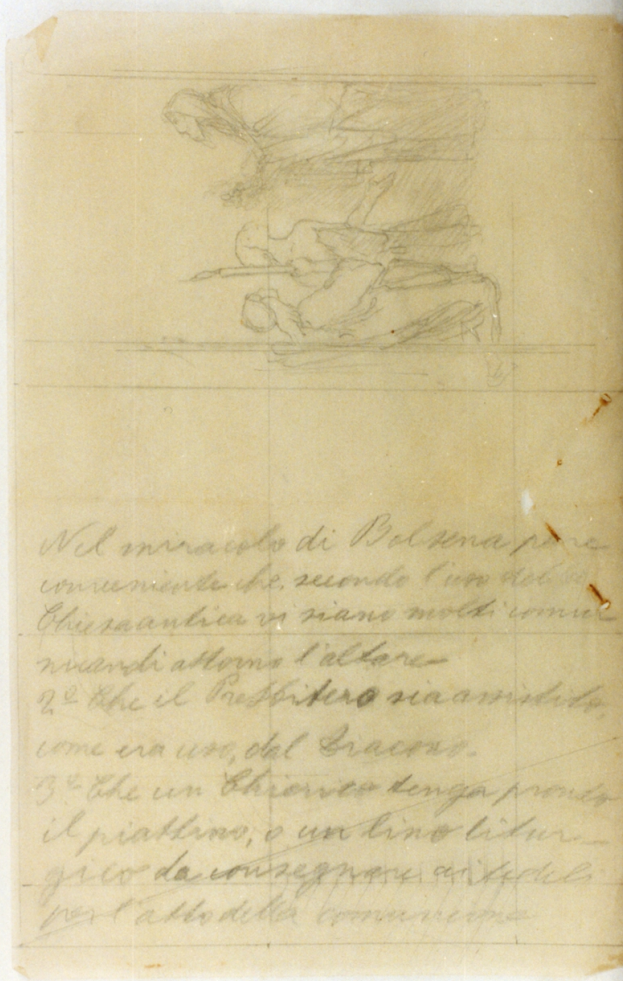 Nel miracolo di Bolsena pare
conveniente che, secondo l'uso della
Chiesa antica vi siano molti comu-
nicandi attorno l'altare
2º Che il Presbitero sia assistito,
come era uso, dal Diacono.
3º Che un Chierico tenga pronto
il piattino, o un lino litur-
gico da consegnare ai fedeli
per l'atto della comunione